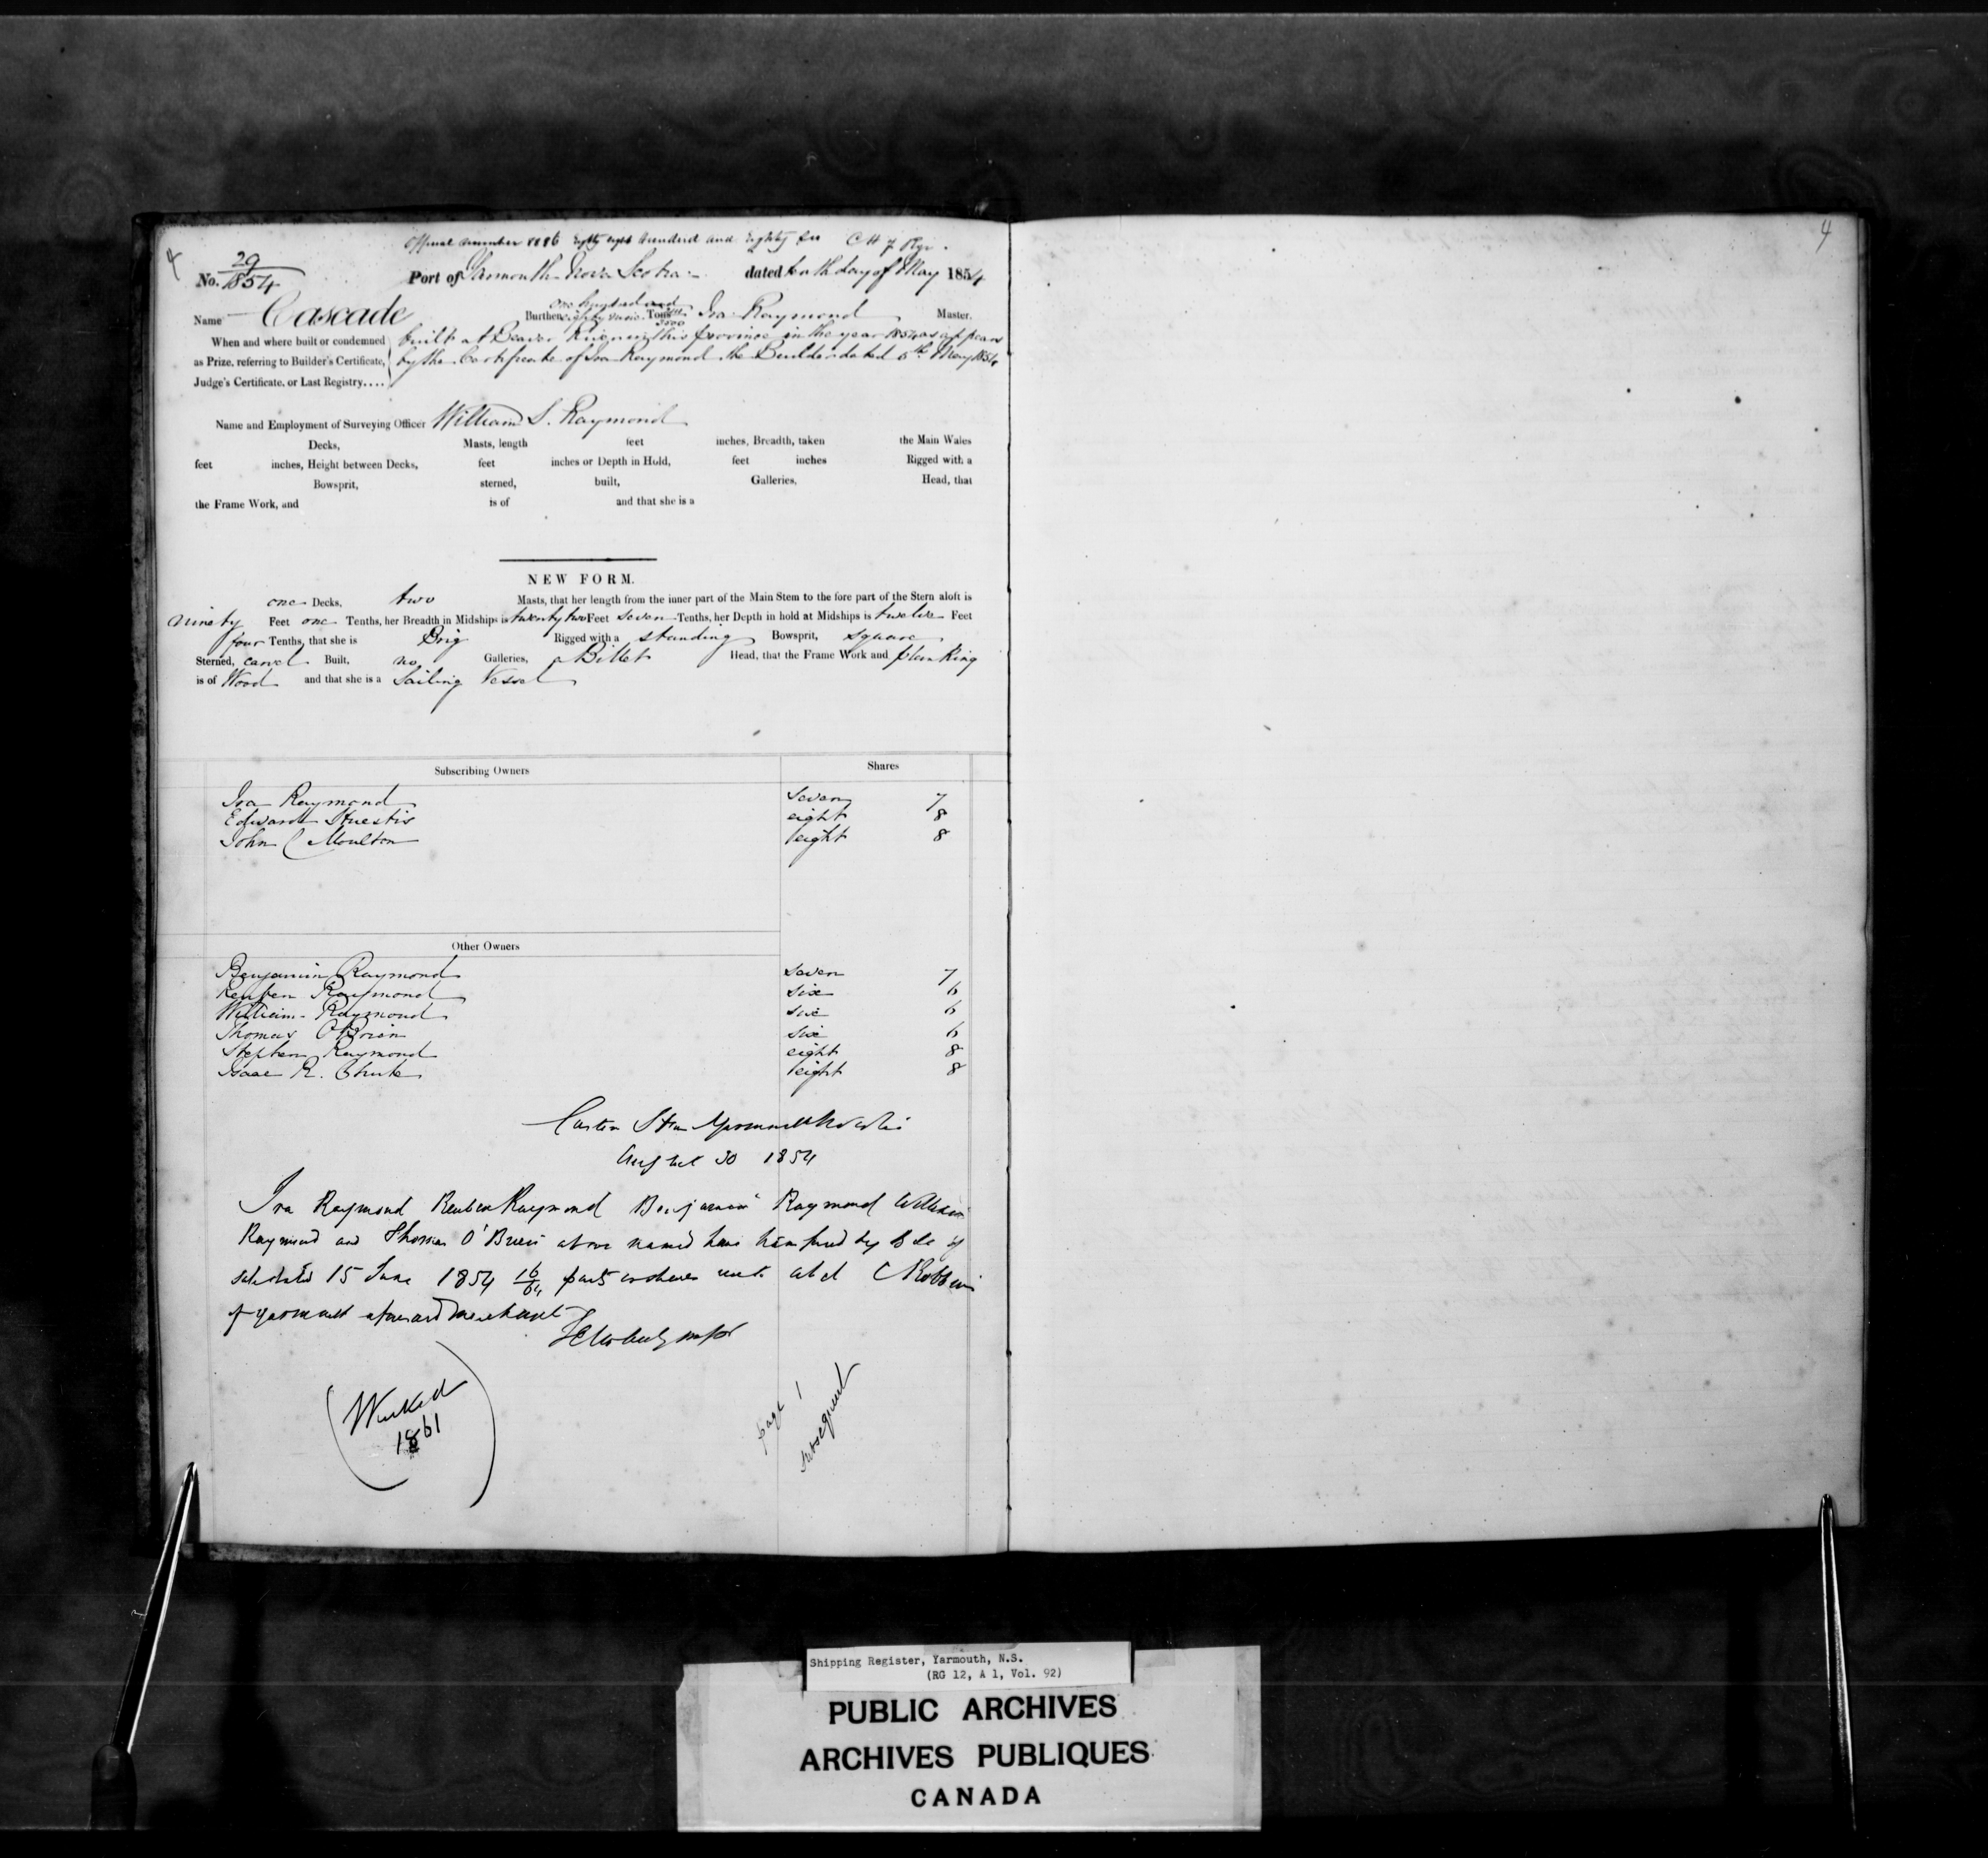 4
4
Official number 8886 Eighty eight hundred and Eighty Six C H 7 Rgr.
No. 29/1854 Port of Yarmouth Nova Scotia dated tenth day of May 1854
Name Cascade Burthen one hundred and eighty nine Tons 3500 Ira Raymond Master.
When and where built or condemned built at Beaver River in this province in the year 1854 as appears
as Prize, referring to Builder's Certificate, by the Certificate of Ira Raymond the Builder dated 6th May 1854
Judge's Certificate, or Last Registry....
Name and Employment of Surveying Officer William S. Raymond
Decks, Masts, length feet inches, Breadth, taken the Main Wales
feet inches, Height between Decks, feet inches or Depth in Hold, feet inches Rigged with a
Bowsprit, sterned, built, Galleries, Head, that
the Frame Work, and is of and that she is a
NEW FORM.
one Decks, two Masts, that her length from the inner part of the Main Stem to the fore part of the Stern aloft is
ninety Feet one Tenths, her Breadth in Midships is twenty two Feet seven Tenths, her Depth in hold at Midships is twelve Feet
four Tenths, that she is Brig Rigged with a standing Bowsprit, square
Sterned, carvel Built, no Galleries, a Billet Head, that the Frame Work and planking
is of Wood and that she is a Sailing Vessel
Subscribing Owners Shares
Ira Raymond seven 7
Edward Huestis eight 8
John C Moulton eight 8
Other Owners
Benjamin Raymond seven 7
Reuben Raymond six 6
William Raymond six 6
Thomas O'Brien six 6
Stephen Raymond eight 8
Isaac R. eight 8
Custom House Yarmouth
August 30 1854
Ira Raymond Reuben Raymond Benjamin Raymond William
Raymond and Thomas O'Brien above named have transferred by Bill of
sale dated 15 June 1854 16/64 parts or shares unto C Robbins
of Yarmouth aforesaid merchant
(Wrecked
1861)
page 1
subsequent
Shipping Register, Yarmouth, N.S.
(RG 12, A 1, Vol. 92)
PUBLIC ARCHIVES
ARCHIVES PUBLIQUES
CANADA